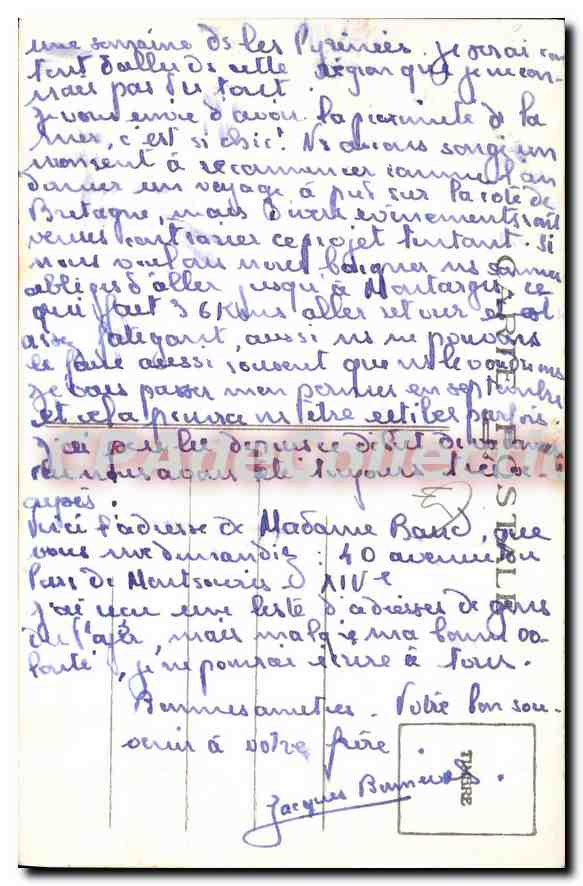 une semaine ds les Pyrénées. Je serai con
tent d'aller ds cette région que je ne con
nais pas du tout.
Je vous envie d'avoir la proximité de la
mer, c'est si chic! Ns avions songé un
moment à recommencer comme l'an
dernier un voyage à pied sur la côte de
Bretagne, mais divers événements sont
venus contrarier ce projet tentant. Si
nous voulons nous baigner ns sommes
obligés d'aller jusqu'à Montargis ce
qui fait 36 Kms aller retour et est
assez fatigant, aussi ns ne pouvons
le faire aussi souvent que ns le voudrions
Je vais passer mon permis en septembre
et cela pourra ns être utile parfois.
J'ai peu lu depuis le début des vacances
car nous avons été toujours très oc
cupés.
Voici l'adresse de Madame Baud, que
vous me demandiez : 40 avenue du
Parc de Montsouris XIVe
J'ai reçu une liste d'adresses de gens
de, mais malgré ma bonne vo-
lonté, je ne pourrai écrire à tous.
Bonnes amitiés. Votre bon sou-
venir à votre frère.
Jacques
CARTE POSTALE
TIMBRE